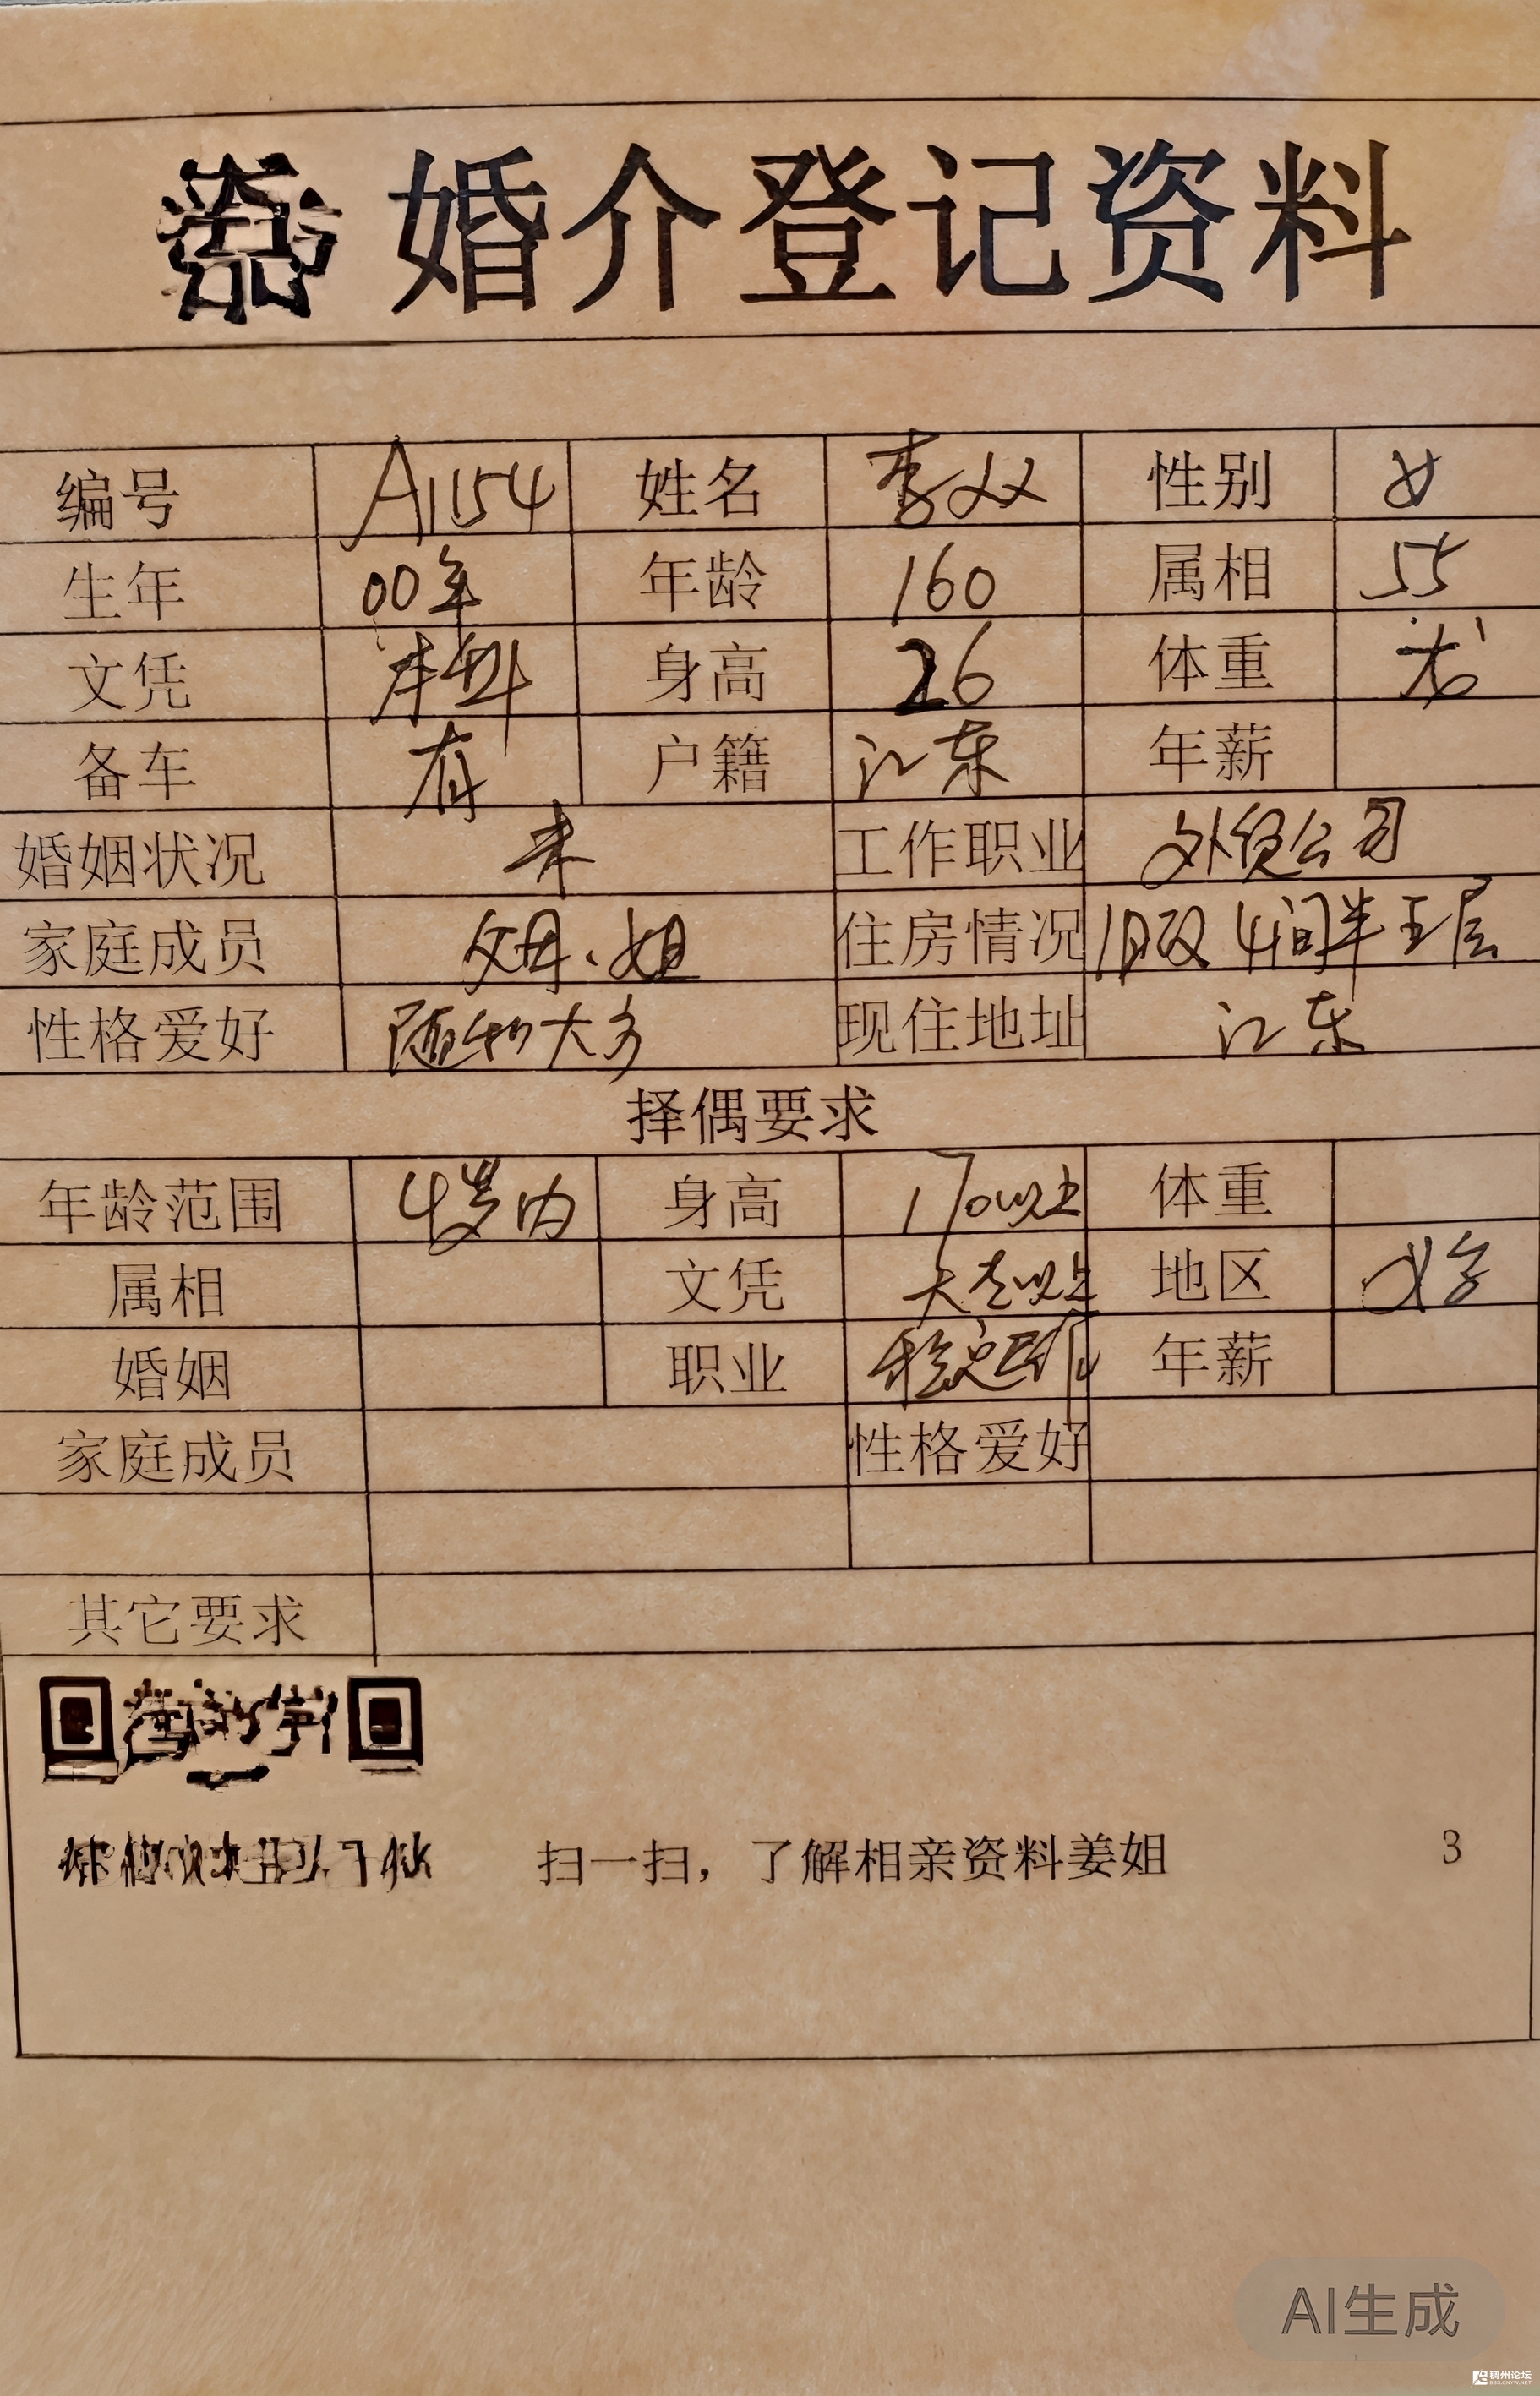 婚介登记资料
编号 A1154 姓名 李双 性别 女
生年 00年 年龄 160 属相 55
文凭 本科 身高 26 体重 龙
备车 有 户籍 江东 年薪
婚姻状况 未 工作职业 外贸公司
家庭成员 父母、姐 住房情况 旧改4间半五层
性格爱好 随和大方 现住地址 江东
择偶要求
年龄范围 4岁内 身高 170以上 体重
属相 文凭 大专以上 地区 义乌
婚姻 职业 稳定 年薪
家庭成员 性格爱好
其它要求
扫一扫，了解相亲资料姜姐 3
AI生成
稠州论坛
BBS.CNYW.NET